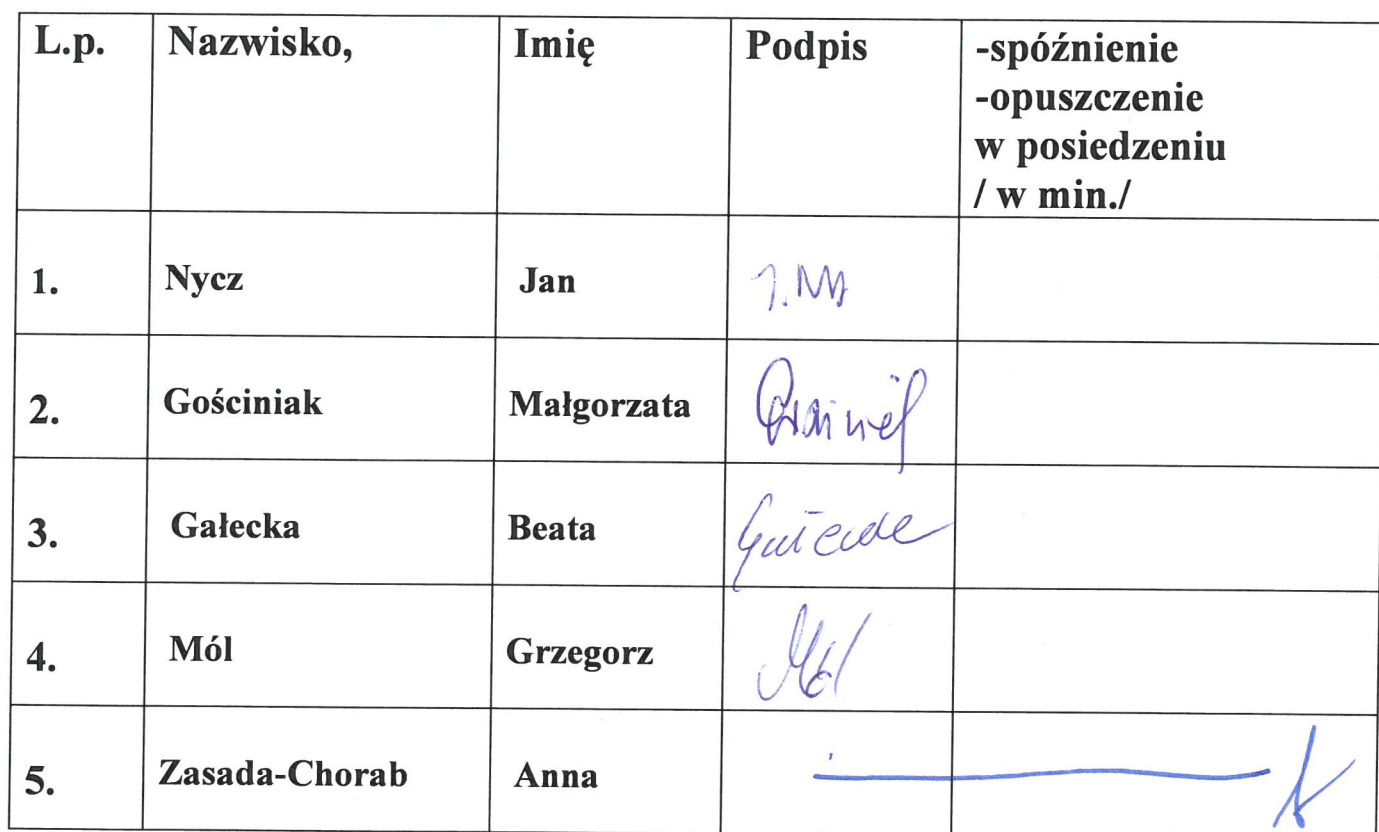 L.p. Nazwisko, Imię Podpis -spóźnienie
-opuszczenie
w posiedzeniu
/ w min./
1. Nycz Jan
2. Gościniak Małgorzata
3. Gałecka Beata
4. Mól Grzegorz
5. Zasada-Chorab Anna